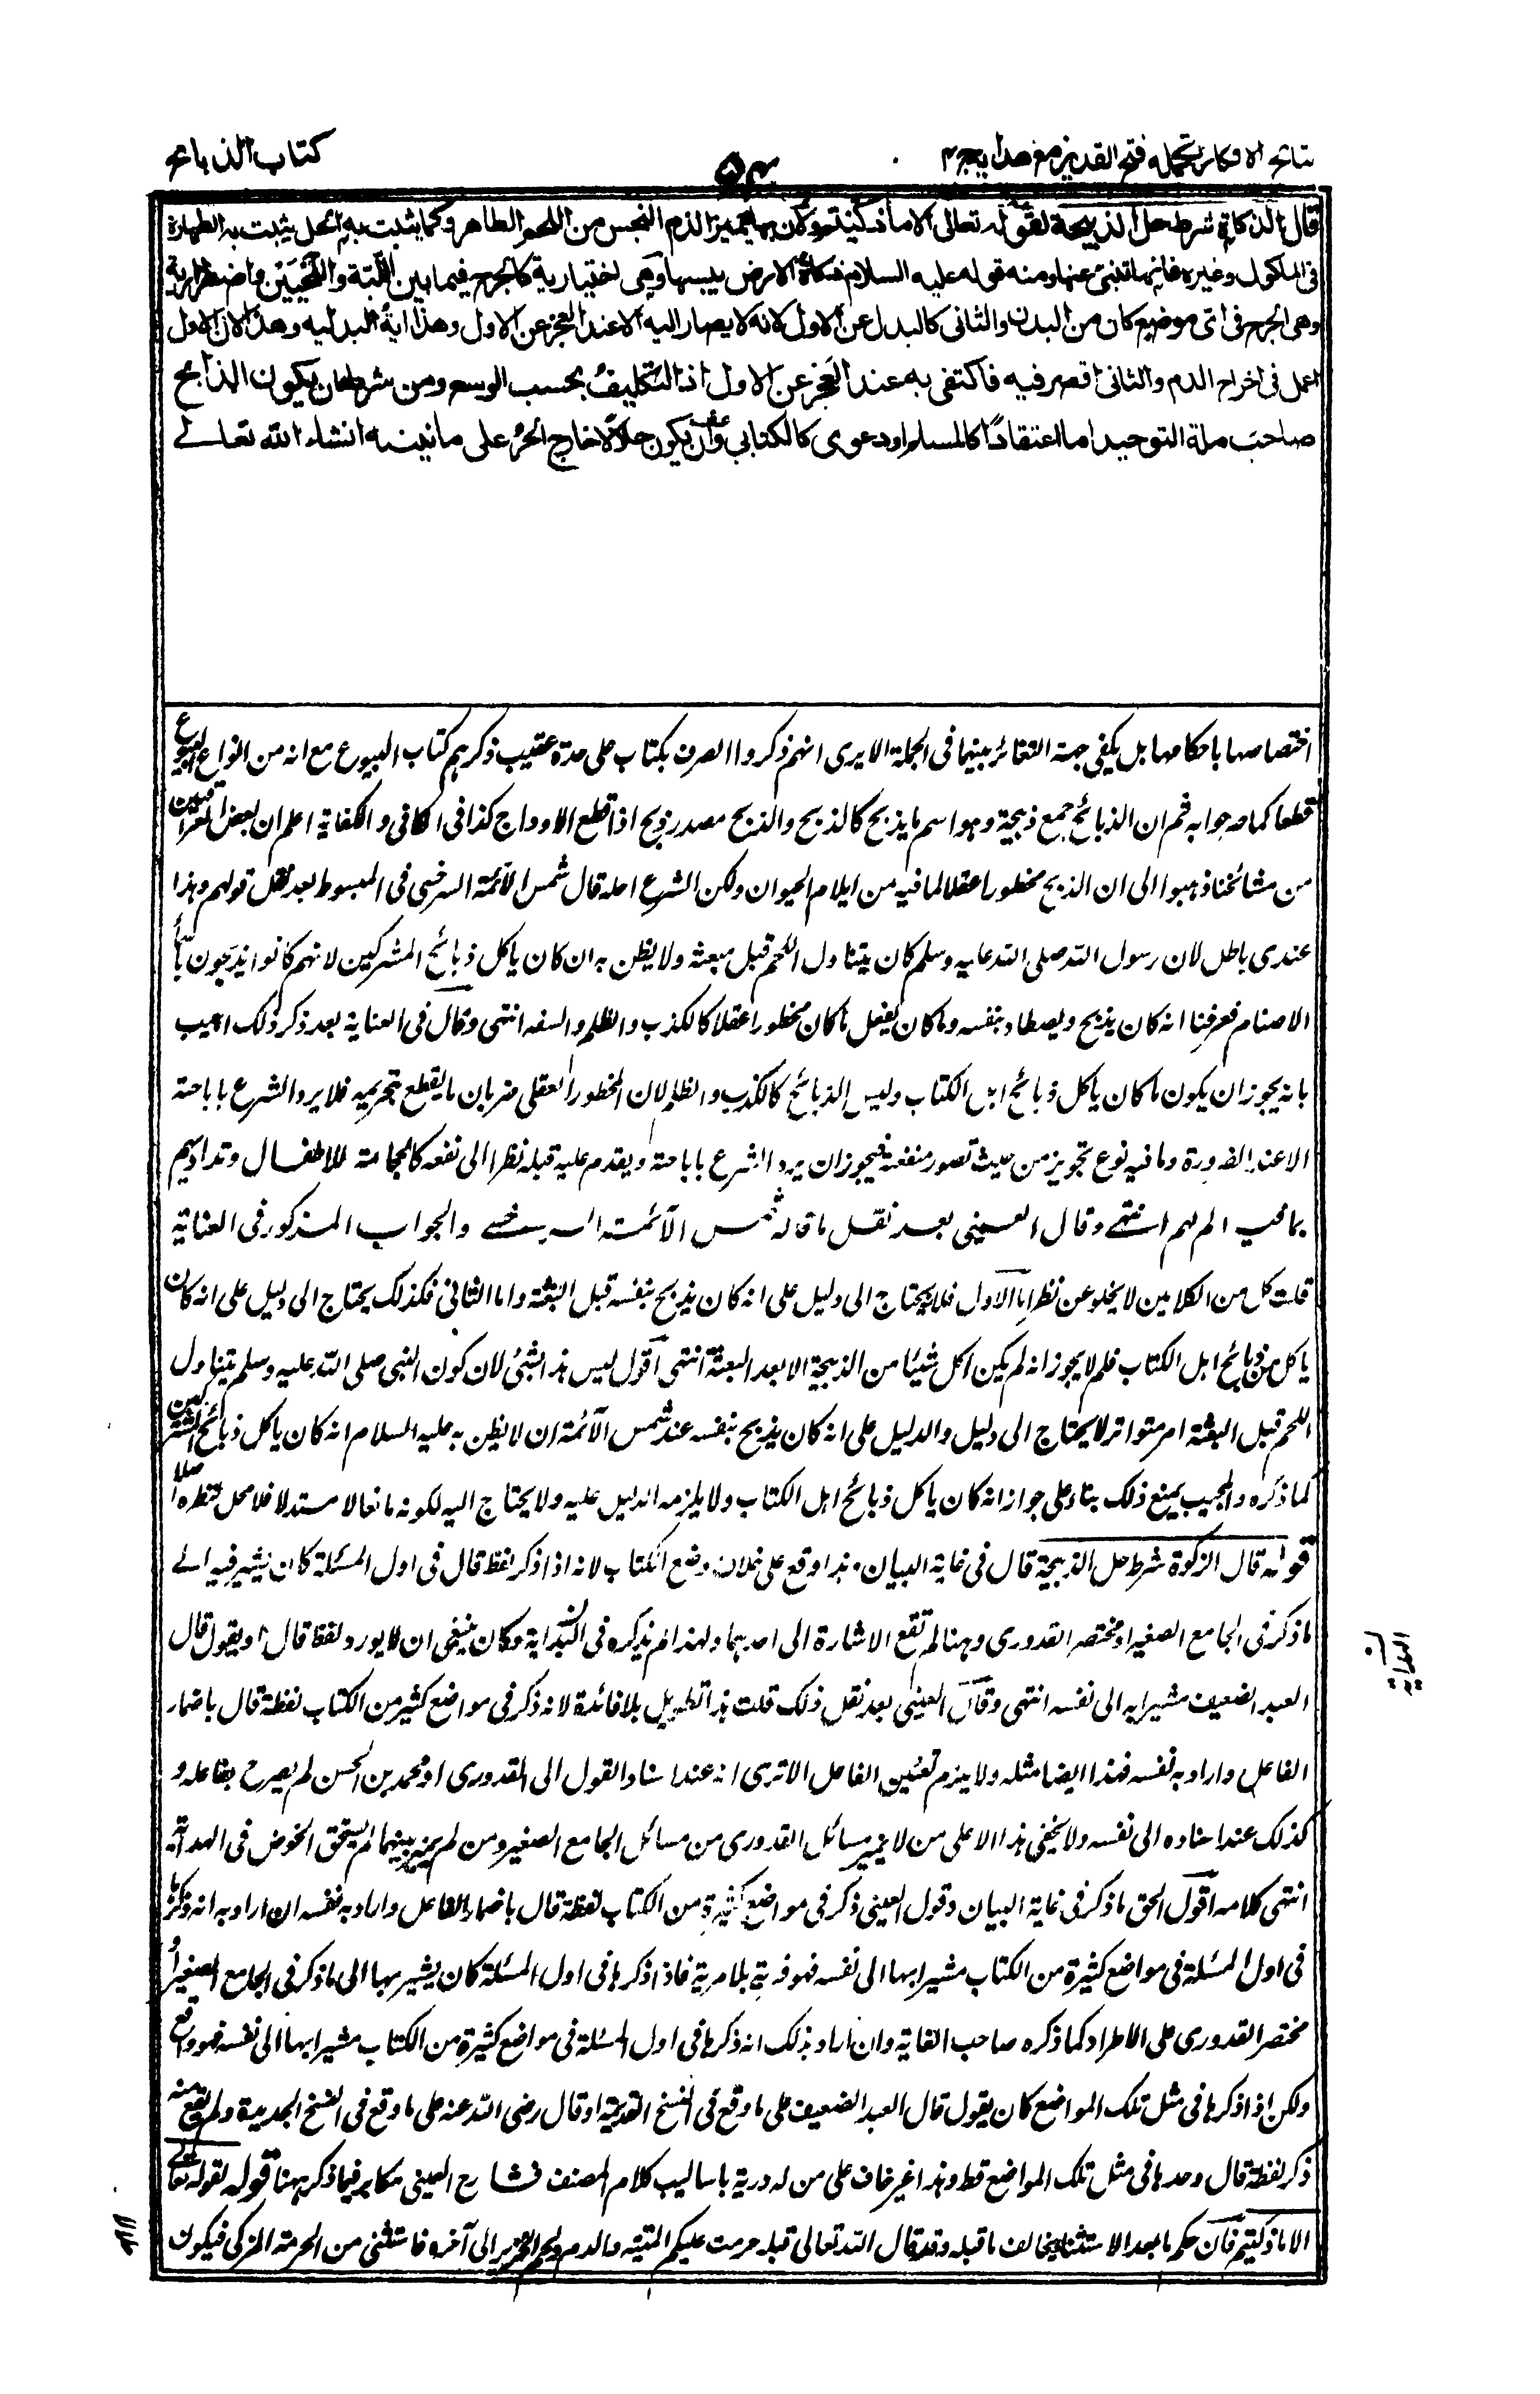 نتائج الافكار تكمله فتح القدير مع هدايه ج ٤
٥٣
كتاب الذبائح
قال الذكاة شرط حل الذبيحة لقوله تعالى الا ما ذكيتم ولان بها يتميز الدم النجس من اللحم الطاهر وكما يثبت به الحل يثبت به الطهارة
فى الماكول وغيره فانها تنبئ عنها ومنه قوله عليه السلام ذكاة الارض يبسها وهى اختيارية كالجرح فيما بين اللبة واللحيين واضطرارية
وهى الجرح فى اى موضع كان من البدن والثانى كالبدل عن الاول لانه لا يصار اليه الا عند العجز عن الاول وهذا اية البدليه وهذا لان الاول
اعمل فى اخراج الدم والثانى اقصر فيه فاكتفى به عند العجز عن الاول اذ التكليف بحسب الوسع ومن شرطه ان يكون الذابح
صاحب ملة التوحيد اما اعتقادًا كالمسلم او دعوى كالكتابي وان يكون حلالًا خارج الحرم على ما نبينه انشاء الله تعالے
اختصاصها باحكامها بل يكفى جهة التغائر بينهما فى الجملة الا يرى انهم ذكروا الصرف بكتاب على حدة عقيب ذكرهم كتاب البيوع مع انه من انواع البيوع
قطعا كما مر جوابه ثم ان الذبائح جمع ذبيحة وهو اسم ما يذبح كالذبح والذبح مصدر ذبح اذا قطع الاوداج كذا فى الكافى والكفاية اعلم ان بعض العراقيين
من مشائخنا ذهبوا الى ان الذبح محظور عقلا لما فيه من ايلام الحيوان ولكن الشرع احله قال شمس الائمة السرخسى فى المبسوط بعد نقل قولهم وهذا
عندى باطل لان رسول الله صلى الله عليه وسلم كان يتناول اللحم قبل مبعثه ولا يظن به ان كان ياكل ذبائح المشركين لانهم كانوا يذبحون باسم
الاصنام فعرفنا انه كان يذبح ويصطاد بنفسه وما كان يفعل ما كان محظورا عقلا كالكذب والظلم والسفه انتهى وقال فى العناية بعد ذكر ذلك اجيب
بانه يجوز ان يكون ما كان ياكل ذبائح اهل الكتاب وليس الذبائح كالكذب والظلم لان المحظور العقلى ضربان ما يقطع بتحريمه فلا يرد الشرع باباحته
الا عند الضرورة وما فيه نوع تجويز من حيث تصور منفعة فيجوز ان يرد الشرع باباحته ويقدم عليه قبله نظرا الى نفعه كالحجامة للاطفال وتداويهم
بما فيه الم لهم انتهے وقال العينى بعد نقل ما قاله شمس الائمة السرخسے والجواب المذكور فى العناية
قلت كل من الكلامين لا يخلو عن نظر اما الاول فلا يحتاج الى دليل على انه كان يذبح بنفسه قبل البعثة واما الثانى فكذلك يحتاج الى دليل على انه كان
ياكل من ذبائح اهل الكتاب فلم لا يجوز انه لم يكن اكل شيئا من الذبيحة الا بعد البعثة انتهى اقول ليس هذا بشئ لان كون النبى صلى الله عليه وسلم يتناول
اللحم قبل البعثة امر متواتر لا يحتاج الى دليل والدليل على انه كان يذبح بنفسه عند شمس الائمة ان لا يظن به عليه السلام انه كان ياكل ذبائح المشركين
كما ذكره والمجيب يمنع ذلك بناء على جواز انه كان ياكل ذبائح اهل الكتاب ولا يلزمه الدليل عليه ولا يحتاج اليه لكونه مانعا لا مستدلا فلا محل لنظره اصلا
قوله قال الزكوة شرط حل الذبيحة قال فى غاية البيان وهذا وقع على خلاف وضع الكتاب لانه اذا ذكر لفظ قال فى اول المسئلة كان يشير فيه الے
ما ذكر فى الجامع الصغير او مختصر القدورى وههنا لم تقع الاشارة الى احدهما ولهذا لم يذكره فى البداية وكان ينبغى ان لا يورد لفظ قال او يقول قال
العبد الضعيف مشيرا به الى نفسه انتهى وقال العينى بعد نقل ذلك قلت هذا تطويل بلا فائدة لانه ذكر فى مواضع كثير من الكتاب لفظة قال باضمار
الفاعل واراد به نفسه فهذا ايضا مثله ولا يلزم تعيين الفاعل الا ترى انه عند اسناد القول الى القدورى او محمد بن الحسن لم يصرح بفاعله و
كذلك عند اسناده الى نفسه ولا يخفى هذا الا على من لا يميز مسائل القدورى من مسائل الجامع الصغير ومن لم يميز بينهما لم يستحق الخوض فى الهداية
انتهى كلامه اقول الحق ما ذكر فى غاية البيان وقول العينى ذكر فى مواضع كثيرة من الكتاب لفظة قال باضمار الفاعل واراد به نفسه ان اراد به انه ذكرها
فى اول المسئلة فى مواضع كثيرة من الكتاب مشيرا بها الى نفسه فهو فرية بلا مرية فاذا ذكرها فى اول المسئلة كان يشير بها الى ما ذكر فى الجامع الصغير او
مختصر القدورى على الاطراد كما ذكره صاحب الغاية وان اراد بذلك انه ذكرها فى اول المسئلة فى مواضع كثيرة من الكتاب مشيرا بها الى نفسه فهو واقع
ولكن اذا ذكرها فى مثل تلك المواضع كان يقول قال العبد الضعيف على ما وقع فى النسخ القديمة او قال رضى الله عنه على ما وقع فى النسخ الجديدة ولم يقع منه
ذكر لفظة قال وحدها فى مثل تلك المواضع قط وهذا غير خاف على من له درية باساليب كلام المصنف فشارح العينى مكابر فيما ذكر ههنا قوله لقوله تعالے
الا ما ذكيتم فان حكم ما بعد الاستثناء يخالف ما قبله وقد قال الله تعالى قبله حرمت عليكم الميتة والدم ولحم الخنزير الى آخره فاستثنى من الحرمة المزكى فيكون